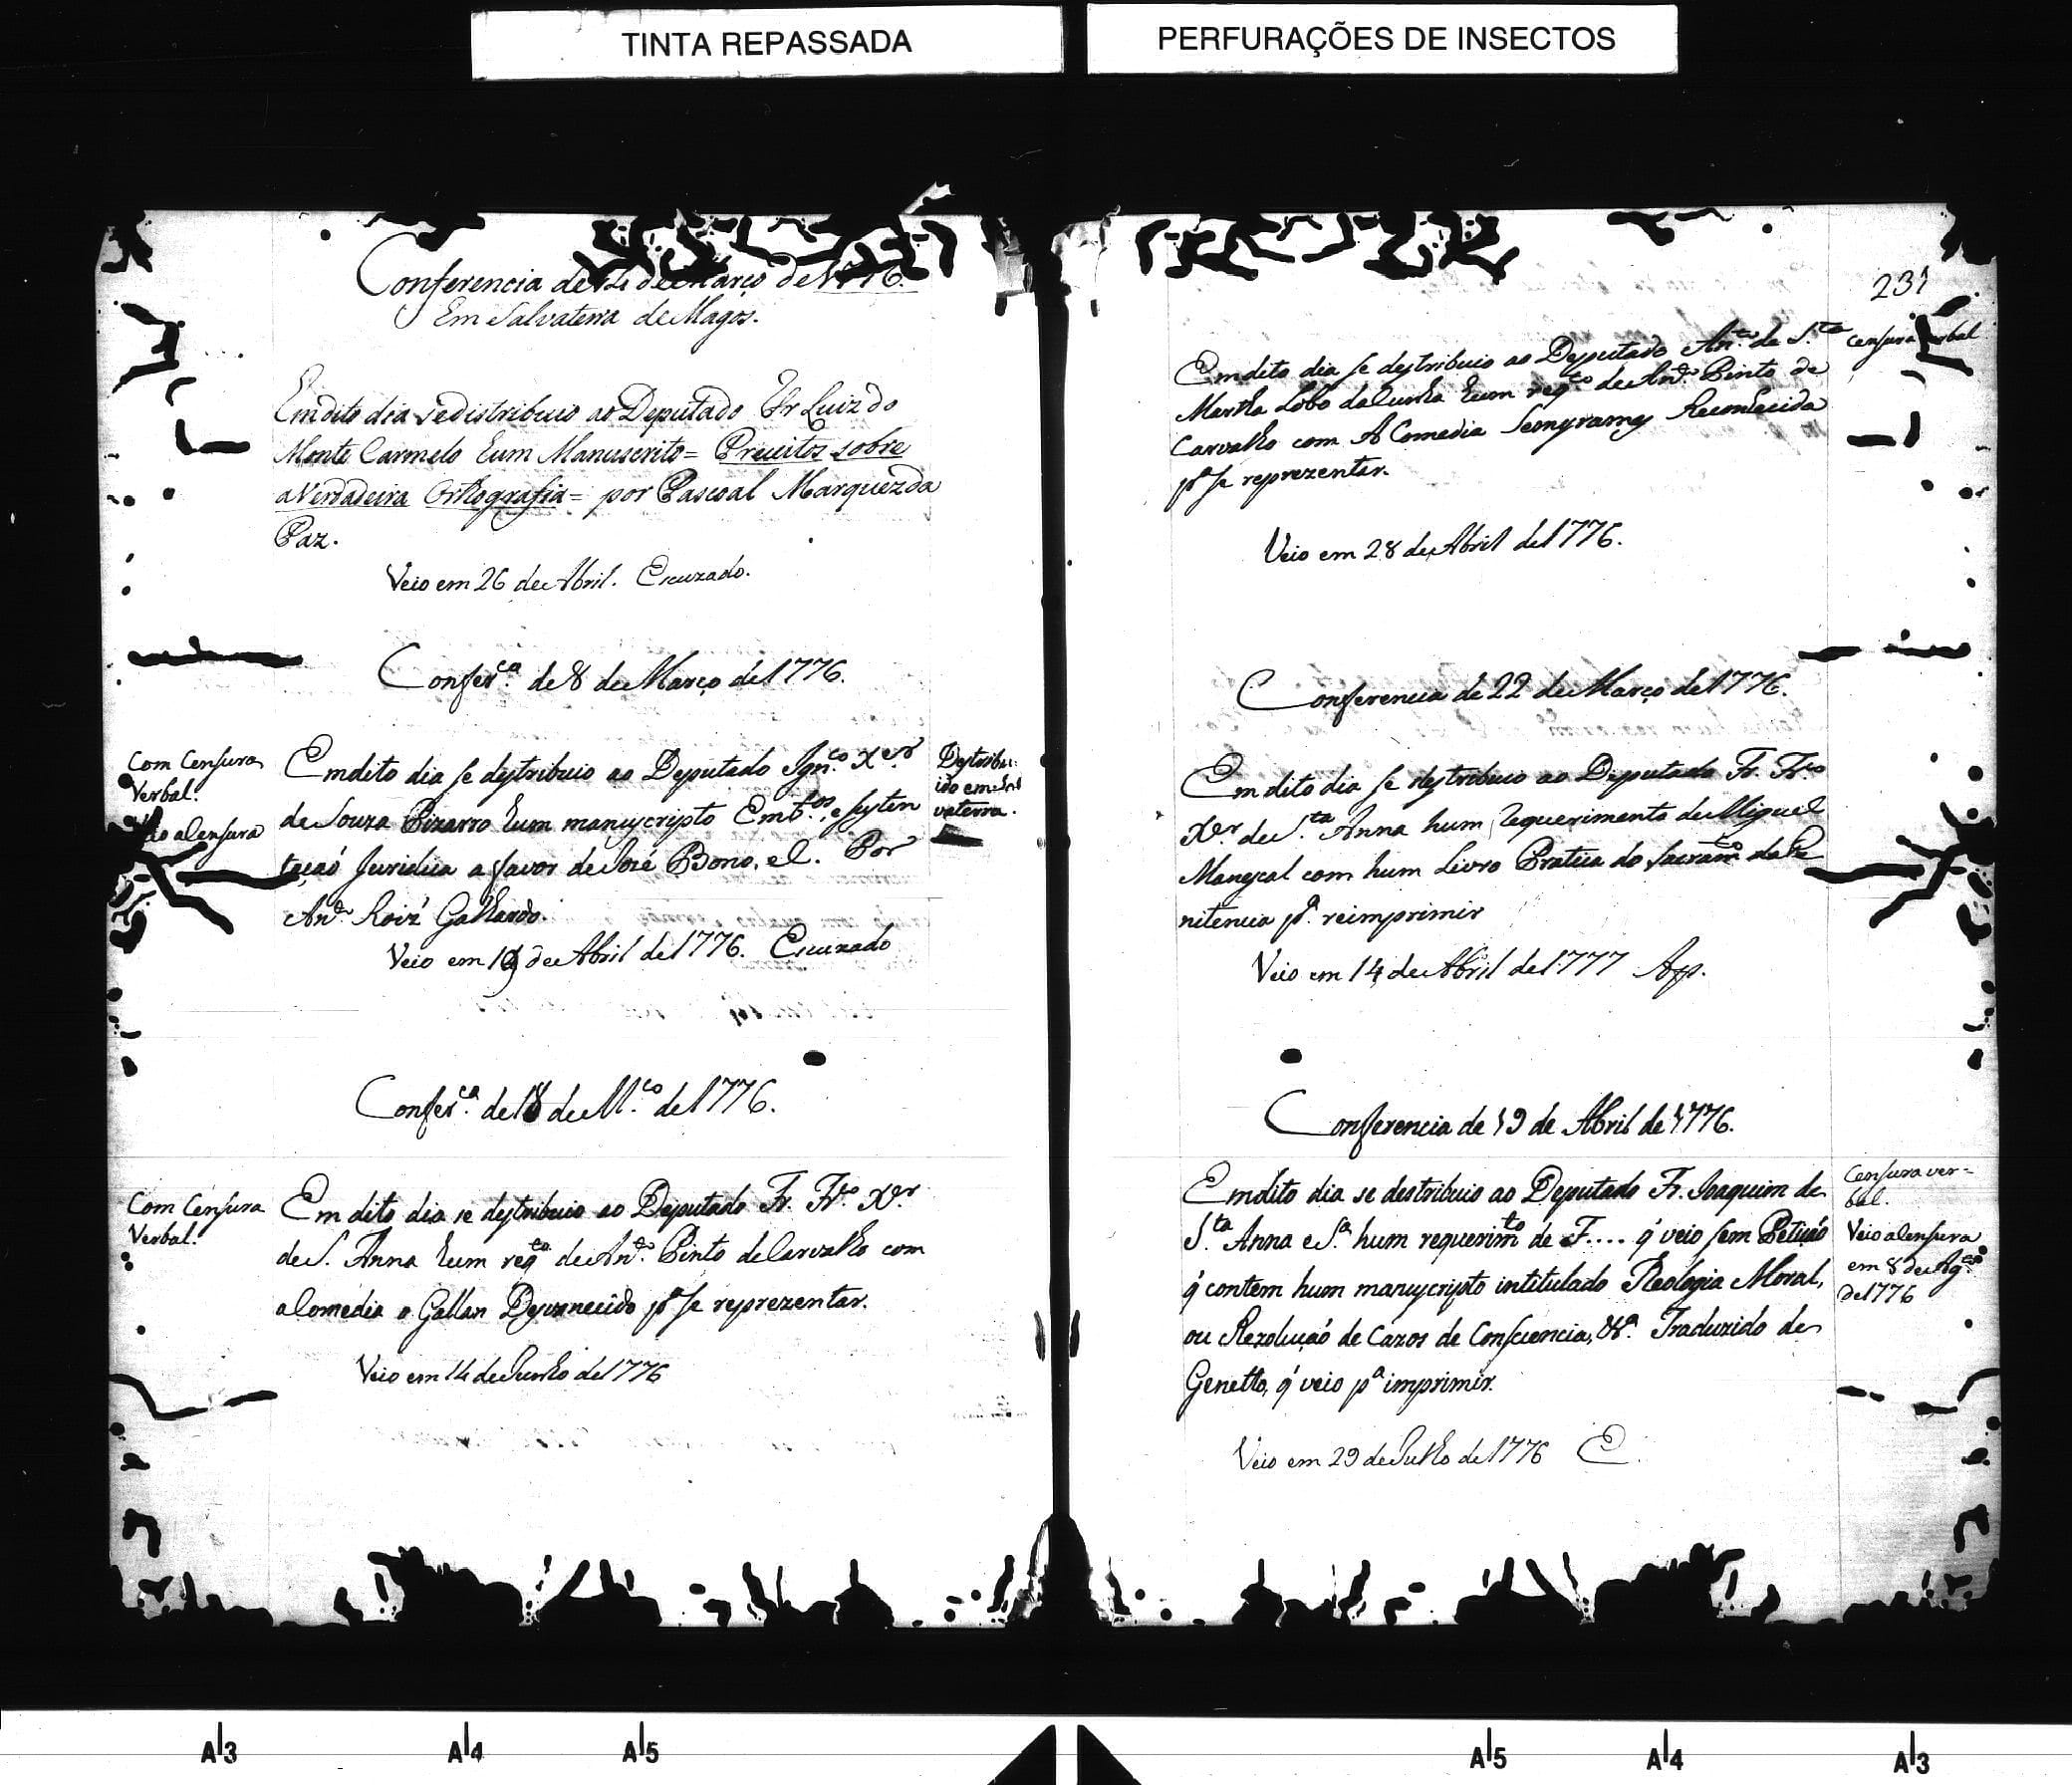 TINTA REPASSADA
PERFURAÇÕES DE INSECTOS
Conferencia de 4 de Março de 1776.
Em Salvaterra de Magos.
Em dito dia se distribuio ao Deputado Fr Luiz do
Monte Carmelo hum Manuscrito = Preceitos sobre
a Verdadeira Orthografia = por Pascoal Marquez da
Paz.
Veio em 26 de Abril. Escuzado.
Confer.ca de 8 de Março de 1776.
Com Censura
Verbal.
a Censura
Em dito dia se destribuio ao Deputado Ign.co X.er
de Souza Pizarro hum manuscripto Emb.os, e susten
taçaó Juridica a favor de Jozé Bono, e C. Por
An.to Roiz' Galhardo.
Veio em 19 de Abril de 1776. Escuzado
Destribu-
ido em Sal
vaterra.
Confer.ca de 18 de M.ço de 1776.
Com Censura
Verbal.
Em dito dia se destribuio ao Deputado Fr. Fr.co X.er
de S. Anna hum req.to de An.to Pinto de Carvalho com
a Comedia o Gallan Desvanecido p.a se reprezentar.
Veio em 14 de Junho de 1776
231
Em dito dia se destribuio ao Deputado An.to de S.ta
Martha Lobo da Cunha hum req.to de An.to Pinto de
Carvalho com A Comedia Reconhecida
p.a se reprezentar.
Censura verbal
Veio em 28 de Abril de 1776.
Conferencia de 22 de Março de 1776.
Em dito dia se destribuio ao Deputado Fr. Fr.co
X.er de S.ta Anna hum requerimento de Miguel
Manescal com hum Livro Pratica do Sacram.to da Pe
nitencia p.a reimprimir
Veio em 14 de Abril de 1777 Ap.
Conferencia de 19 de Abril de 1776.
Em dito dia se destribuio ao Deputado Fr. Joaquim de
S.ta Anna e S.a hum requerim.to de F.... q' veio sem Petiçaó
q' contem hum manuscripto intitulado Theologia Moral,
ou Rezoluçaó de Cazos de Consciencia, &.a Traduzido de
Genetto, q' veio p.a imprimir.
Censura ver-
bal.
Veio a Censura
em 8 de Ag.to
de 1776
Veio em 29 de Julho de 1776 E.
A3
A4
A5
A5
A4
A3